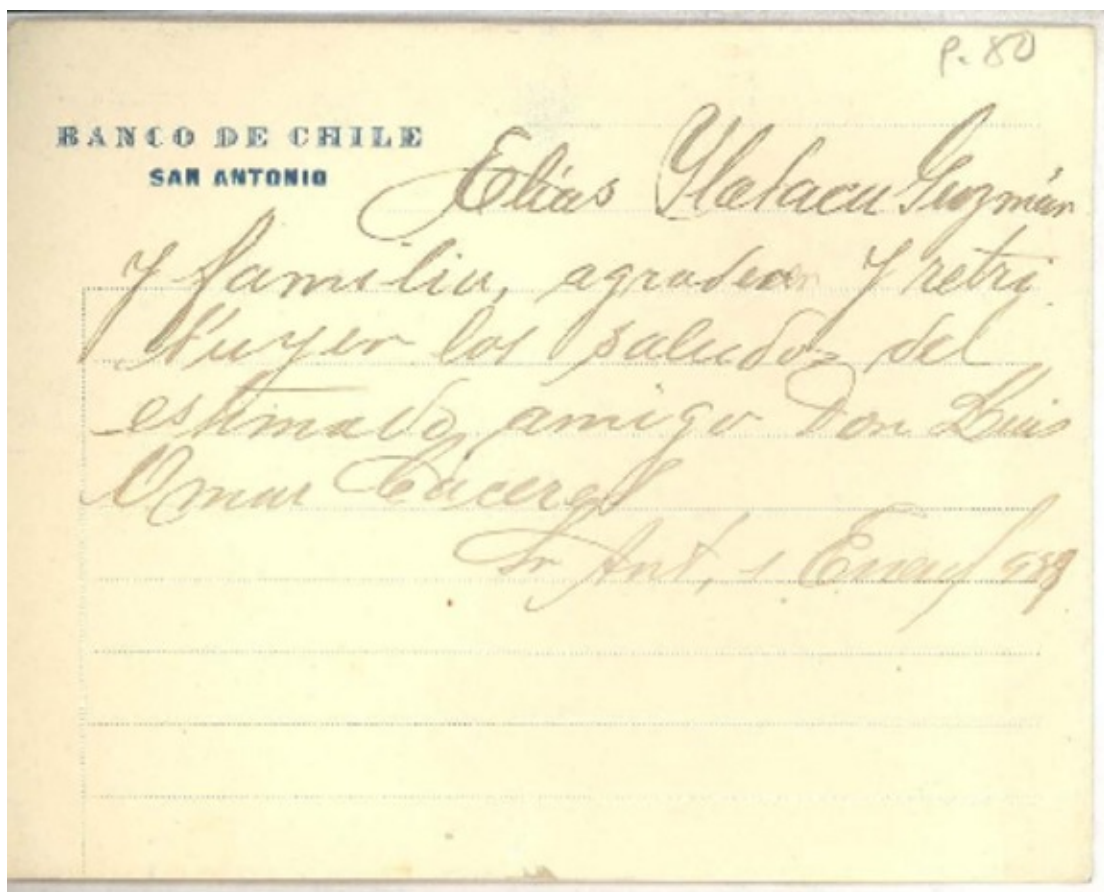 P. 80
BANCO DE CHILE
SAN ANTONIO
Elías Guzmán
y familia, agradecen y retri
buyen los saludos del
estimado amigo Don Luis
Omar Cáceres
Sn Ant, 1 Enero/939